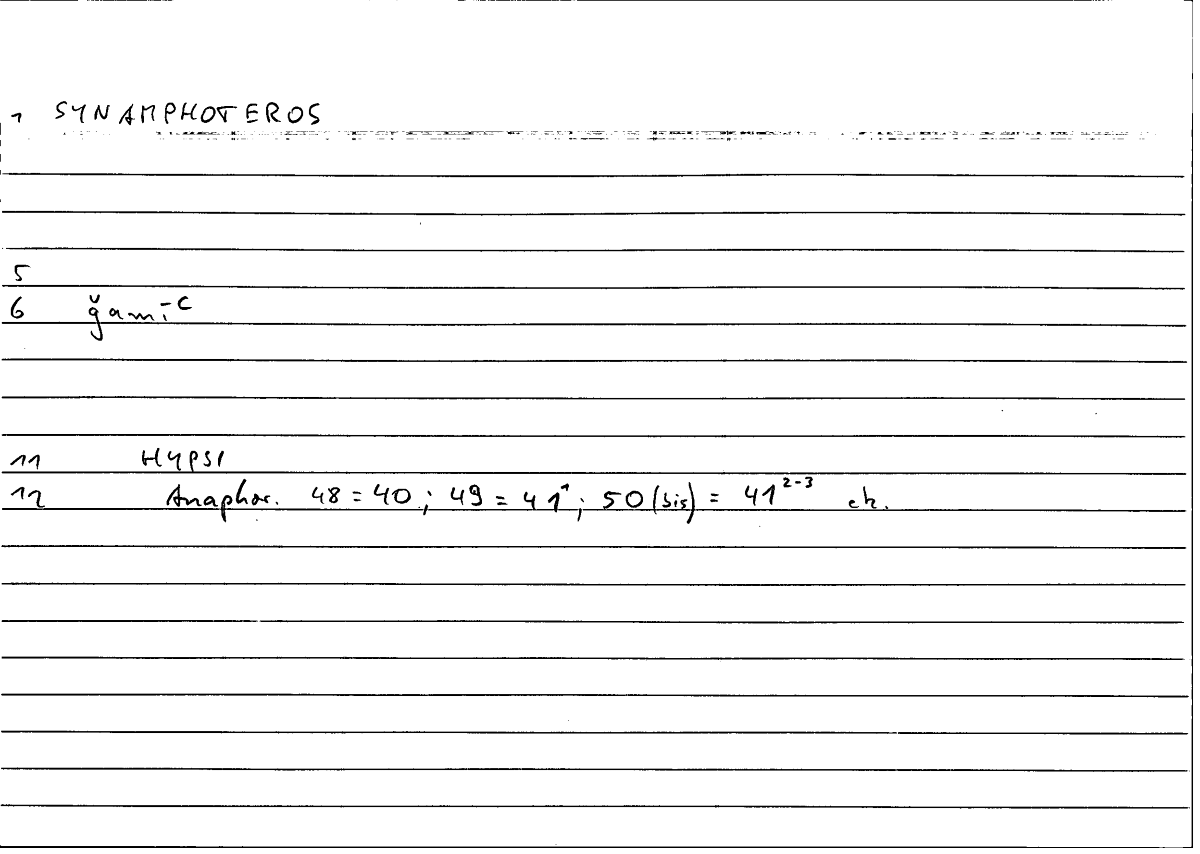 1 SYNAMPHOTEROS
5
6 ǧamīʿ
11 HYPSI
12 Anaphor. 48 = 40 ; 49 = 41¹ ; 50 (bis) = 41²⁻³